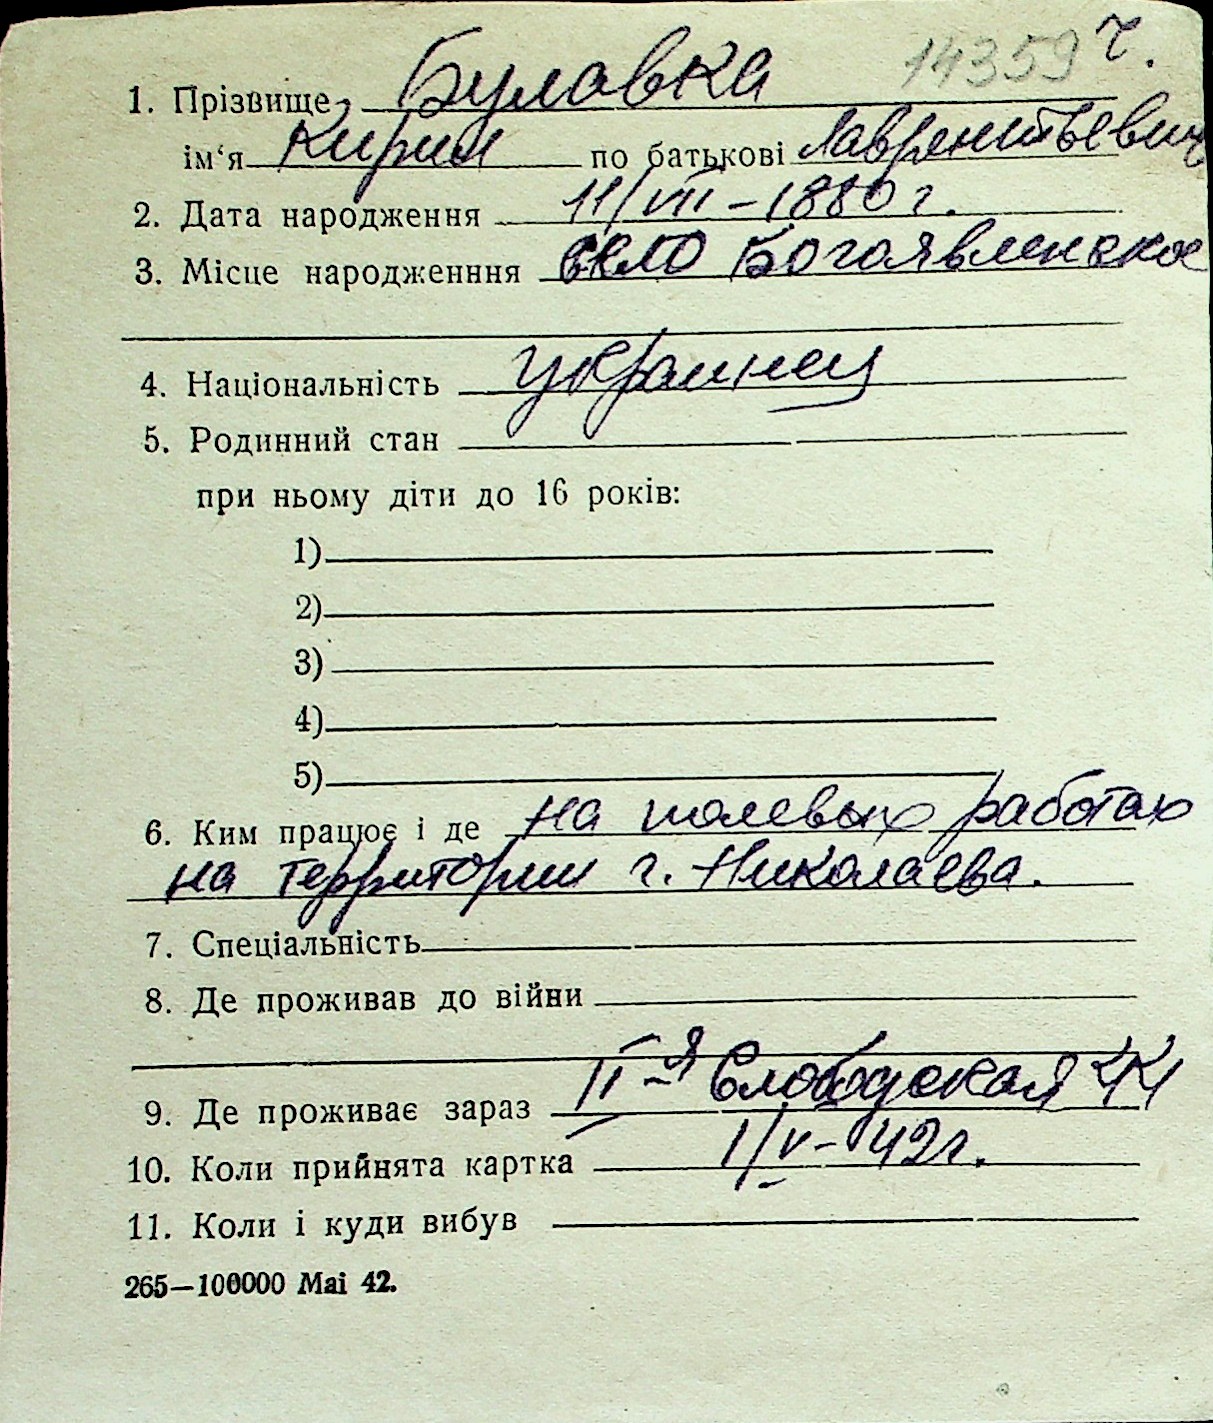 14359 ч.
1. Прізвище, Булавка
ім‘я Кирил по батькові Лаврентьевич
2. Дата народження 11/VIII – 1880 г.
3. Місце народженння село Богоявленское
4. Національність украинец
5. Родинний стан
при ньому діти до 16 років:
1)
2)
3)
4)
5)
6. Ким працює і де на полевых работах
на территории г. Николаева.
7. Спеціальність
8. Де проживав до війни
9. Де проживає зараз II-я Слободская 44
10. Коли прийнята картка 1/V – 42 г.
11. Коли і куди вибув
265—100000 Mai 42.